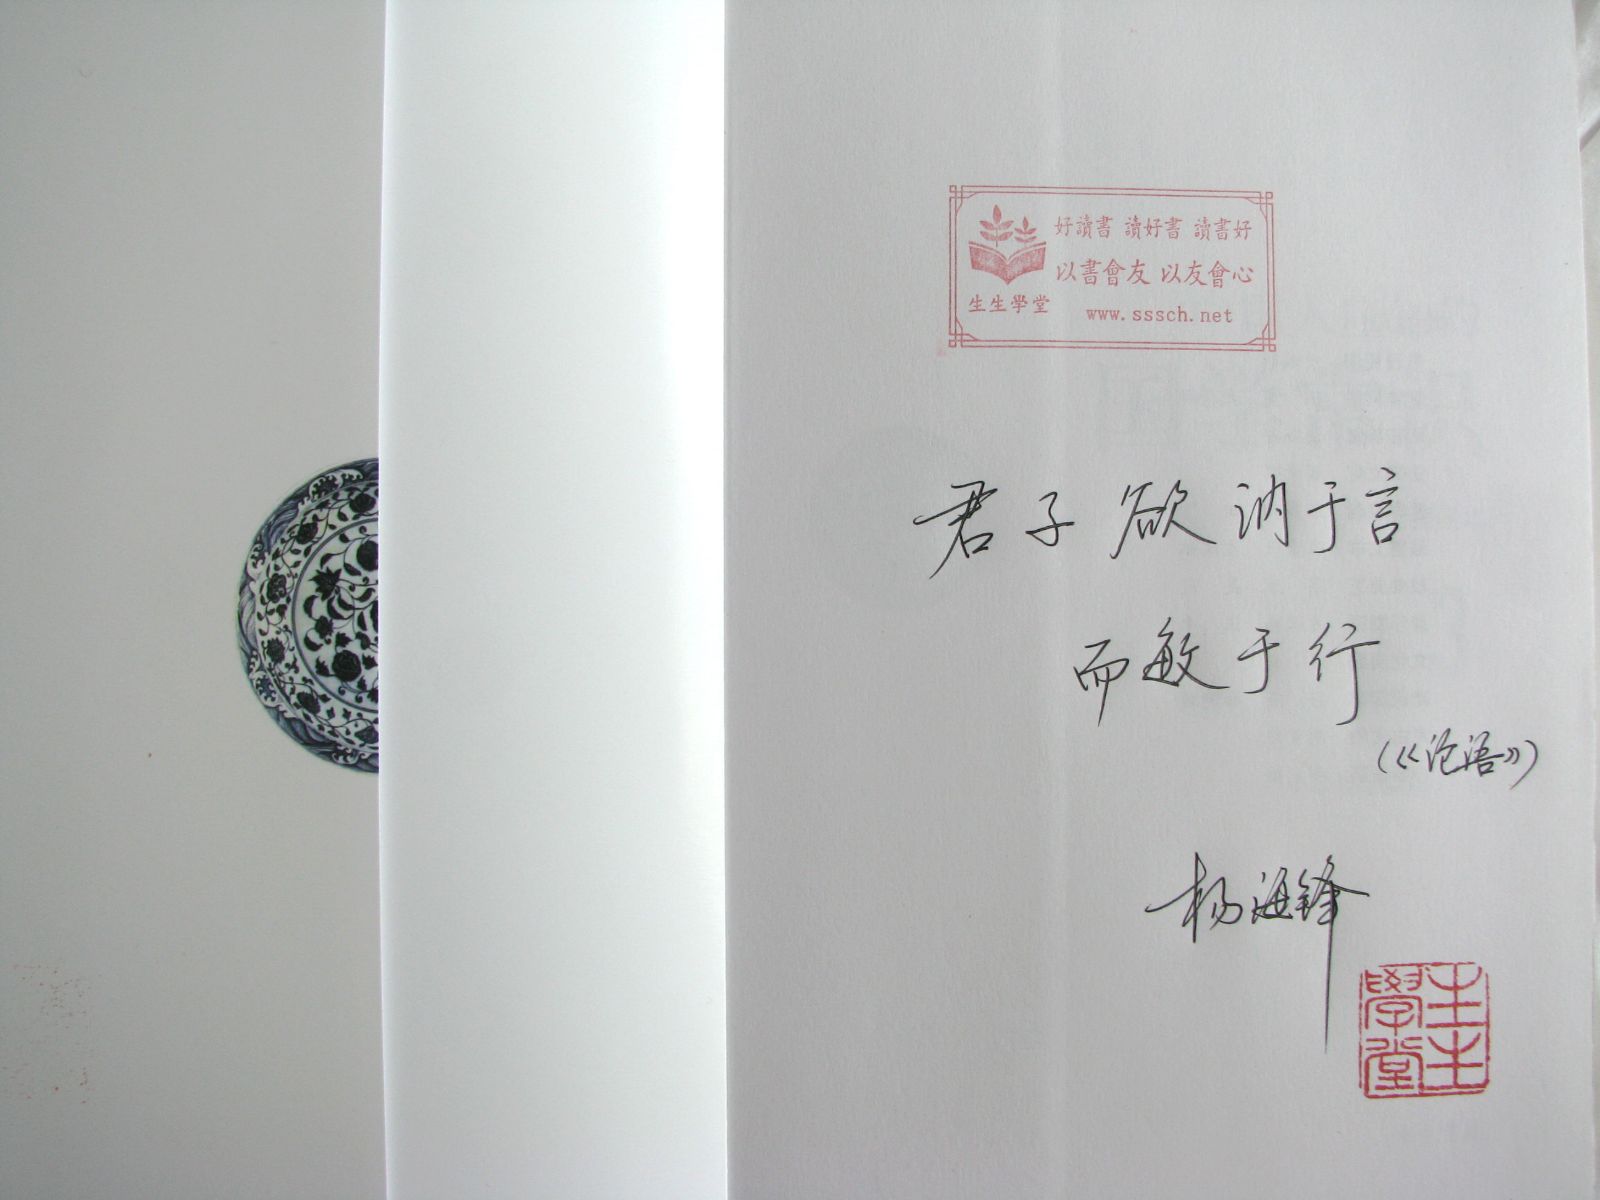 好讀書 讀好書 讀書好
以書會友 以友會心
生生學堂
www.sssch.net
君子欲讷于言
而敏于行
(《论语》)
杨海锋
生生學堂